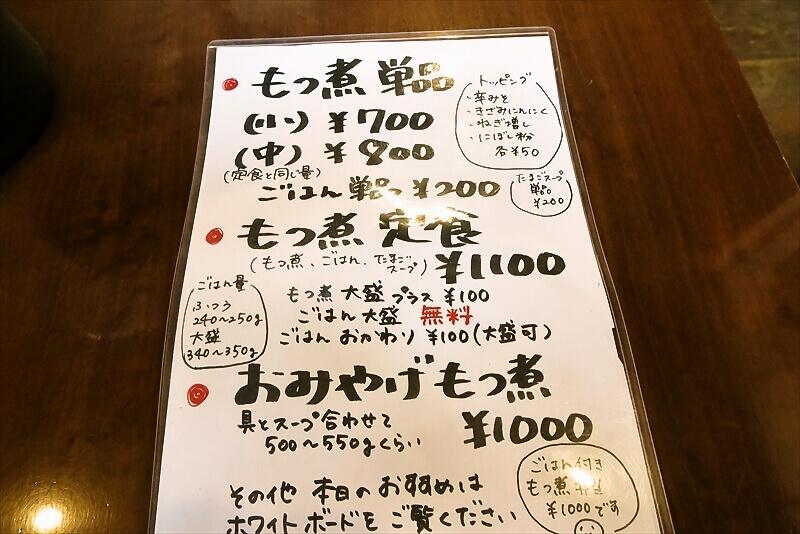 もつ煮 単品
(小) ¥700
(中) ¥800
(定食と同じ量)
ごはん 単品 ¥200
トッピング
・辛みそ
・きざみにんにく
・ねぎ増し
・にぼし粉
各¥50
たまごスープ
単品
¥200
もつ煮 定食
(もつ煮、ごはん、たまごスープ) ¥1100
もつ煮 大盛 プラス ¥100
ごはん 大盛 無料
ごはん おかわり ¥100(大盛可)
ごはん量
ふつう
240〜250g
大盛
340〜350g
おみやげ もつ煮
具とスープ合わせて
500〜550gくらい
¥1000
ごはん付き
もつ煮
¥1000です
その他 本日の お薦めは
ホワイトボードを ご覧ください